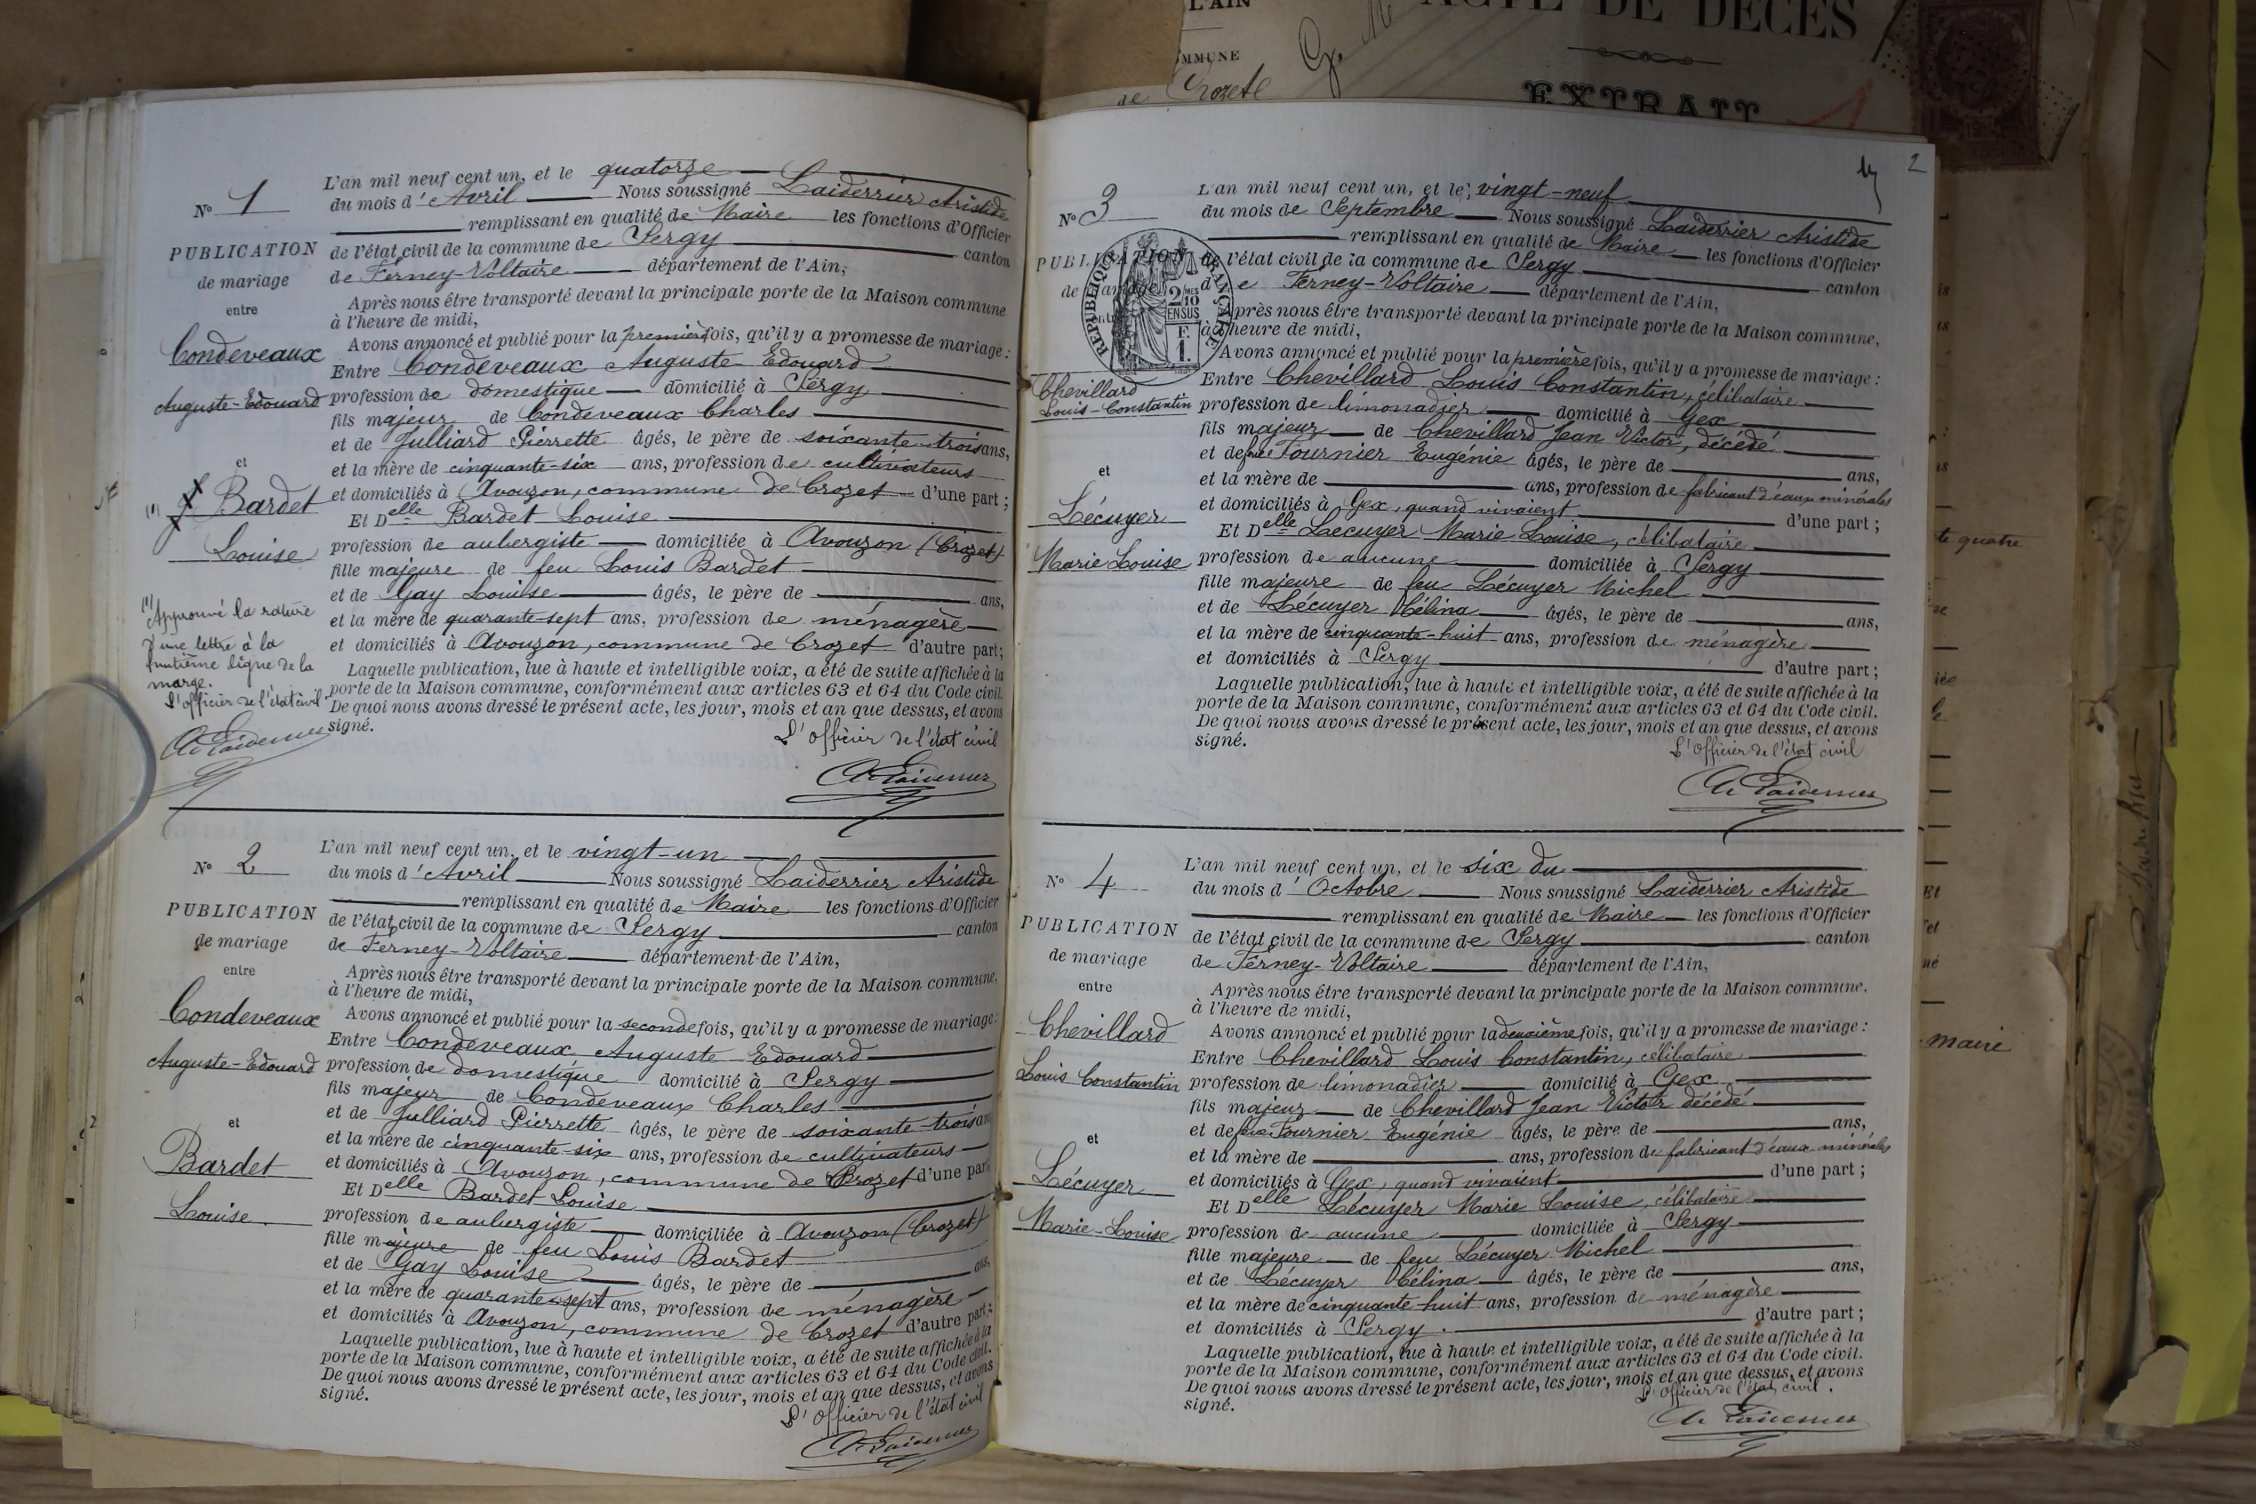 L'AIN
ACTE DE DÉCÈS
COMMUNE
de Crozet
EXTRAIT
N° 1
PUBLICATION
de mariage
entre
Condeveaux
Auguste-Edouard
et
Bardet
Louise
(1) Approuvé la rature
d'une lettre à la
huitième ligne de la
marge.
L'officier de l'état civil
L'an mil neuf cent un, et le quatorze
du mois d'Avril Nous soussigné Laiderrier Aristide
remplissant en qualité de Maire les fonctions d'Officier
de l'état civil de la commune de Sergy canton
de Ferney-Voltaire département de l'Ain,
Après nous être transporté devant la principale porte de la Maison commune
à l'heure de midi,
Avons annoncé et publié pour la première fois, qu'il y a promesse de mariage :
Entre Condeveaux Auguste Edouard
profession de domestique domicilié à Sergy
fils majeur de Condeveaux Charles
et de Julliard Pierrette âgés, le père de soixante-trois ans,
et la mère de cinquante-six ans, profession de cultivateurs
et domiciliés à Avouzon, commune de Crozet d'une part ;
Et Delle Bardet Louise
profession de aubergiste domiciliée à Avouzon (Crozet)
fille majeure de feu Louis Bardet
et de Gay Louise âgés, le père de ans,
et la mère de quarante-sept ans, profession de ménagère
et domiciliés à Avouzon, commune de Crozet d'autre part ;
Laquelle publication, lue à haute et intelligible voix, a été de suite affichée à la
porte de la Maison commune, conformément aux articles 63 et 64 du Code civil.
De quoi nous avons dressé le présent acte, les jour, mois et an que dessus, et avons
signé.
L'officier de l'état civil
N° 2
PUBLICATION
de mariage
entre
Condeveaux
Auguste-Edouard
et
Bardet
Louise
L'an mil neuf cent un, et le vingt-un
du mois d'Avril Nous soussigné Laiderrier Aristide
remplissant en qualité de Maire les fonctions d'Officier
de l'état civil de la commune de Sergy canton
de Ferney-Voltaire département de l'Ain,
Après nous être transporté devant la principale porte de la Maison commune,
à l'heure de midi,
Avons annoncé et publié pour la seconde fois, qu'il y a promesse de mariage :
Entre Condeveaux, Auguste Edouard
profession de domestique domicilié à Sergy
fils majeur de Condeveaux Charles
et de Julliard Pierrette âgés, le père de soixante-trois ans
et la mère de cinquante-six ans, profession de cultivateurs
et domiciliés à Avouzon, commune de Crozet d'une part
Et Delle Bardet Louise
profession de aubergiste domiciliée à Avouzon (Crozet)
fille majeure de feu Louis Bardet
et de Gay Louise âgés, le père de ans,
et la mère de quarante-sept ans, profession de ménagère
et domiciliés à Avouzon, commune de Crozet d'autre part ;
Laquelle publication, lue à haute et intelligible voix, a été de suite affichée à la
porte de la Maison commune, conformément aux articles 63 et 64 du Code civil.
De quoi nous avons dressé le présent acte, les jour, mois et an que dessus, et avons
signé.
L'officier de l'état civil
2
N° 3
PUBLICATION
de mariage
entre
RÉPUBLIQUE FRANÇAISE
2/10
EN SUS
F.
1.
Chevillard
Louis-Constantin
et
Lécuyer
Marie Louise
L'an mil neuf cent un, et le vingt-neuf
du mois de Septembre Nous soussigné Laiderrier Aristide
remplissant en qualité de Maire les fonctions d'Officier
de l'état civil de la commune de Sergy canton
de Ferney-Voltaire département de l'Ain,
Après nous être transporté devant la principale porte de la Maison commune,
à l'heure de midi,
Avons annoncé et publié pour la première fois, qu'il y a promesse de mariage :
Entre Chevillard Louis Constantin, célibataire
profession de limonadier domicilié à Gex
fils majeur de Chevillard Jean Victor, décédé
et de feue Fournier Eugénie âgés, le père de ans,
et la mère de ans, profession de fabricant d'eaux minérales
et domiciliés à Gex, quand vivaient d'une part ;
Et Delle Lecuyer Marie Louise, célibataire
profession de aucune domiciliée à Sergy
fille majeure de feu Lécuyer Michel
et de Lécuyer Célina âgés, le père de ans,
et la mère de cinquante-huit ans, profession de ménagère
et domiciliés à Sergy d'autre part ;
Laquelle publication, lue à haute et intelligible voix, a été de suite affichée à la
porte de la Maison commune, conformément aux articles 63 et 64 du Code civil.
De quoi nous avons dressé le présent acte, les jour, mois et an que dessus, et avons
signé.
L'officier de l'état civil
N° 4
PUBLICATION
de mariage
entre
Chevillard
Louis Constantin
et
Lécuyer
Marie-Louise
L'an mil neuf cent un, et le six du
du mois d'Octobre Nous soussigné Laiderrier Aristide
remplissant en qualité de Maire les fonctions d'Officier
de l'état civil de la commune de Sergy canton
de Ferney-Voltaire département de l'Ain,
Après nous être transporté devant la principale porte de la Maison commune,
à l'heure de midi,
Avons annoncé et publié pour la deuxième fois, qu'il y a promesse de mariage :
Entre Chevillard Louis Constantin, célibataire
profession de limonadier domicilié à Gex
fils majeur de Chevillard Jean Victor décédé
et de feue Fournier Eugénie âgés, le père de ans,
et la mère de ans, profession de fabricant d'eaux minérales
et domiciliés à Gex, quand vivaient d'une part ;
Et Delle Lécuyer Marie Louise, célibataire
profession de aucune domiciliée à Sergy
fille majeure de feu Lécuyer Michel
et de Lécuyer Célina âgés, le père de ans,
et la mère de cinquante-huit ans, profession de ménagère
et domiciliés à Sergy. d'autre part ;
Laquelle publication, lue à haute et intelligible voix, a été de suite affichée à la
porte de la Maison commune, conformément aux articles 63 et 64 du Code civil.
De quoi nous avons dressé le présent acte, les jour, mois et an que dessus, et avons
signé.
L'officier de l'état civil.
quatre
Et
maire